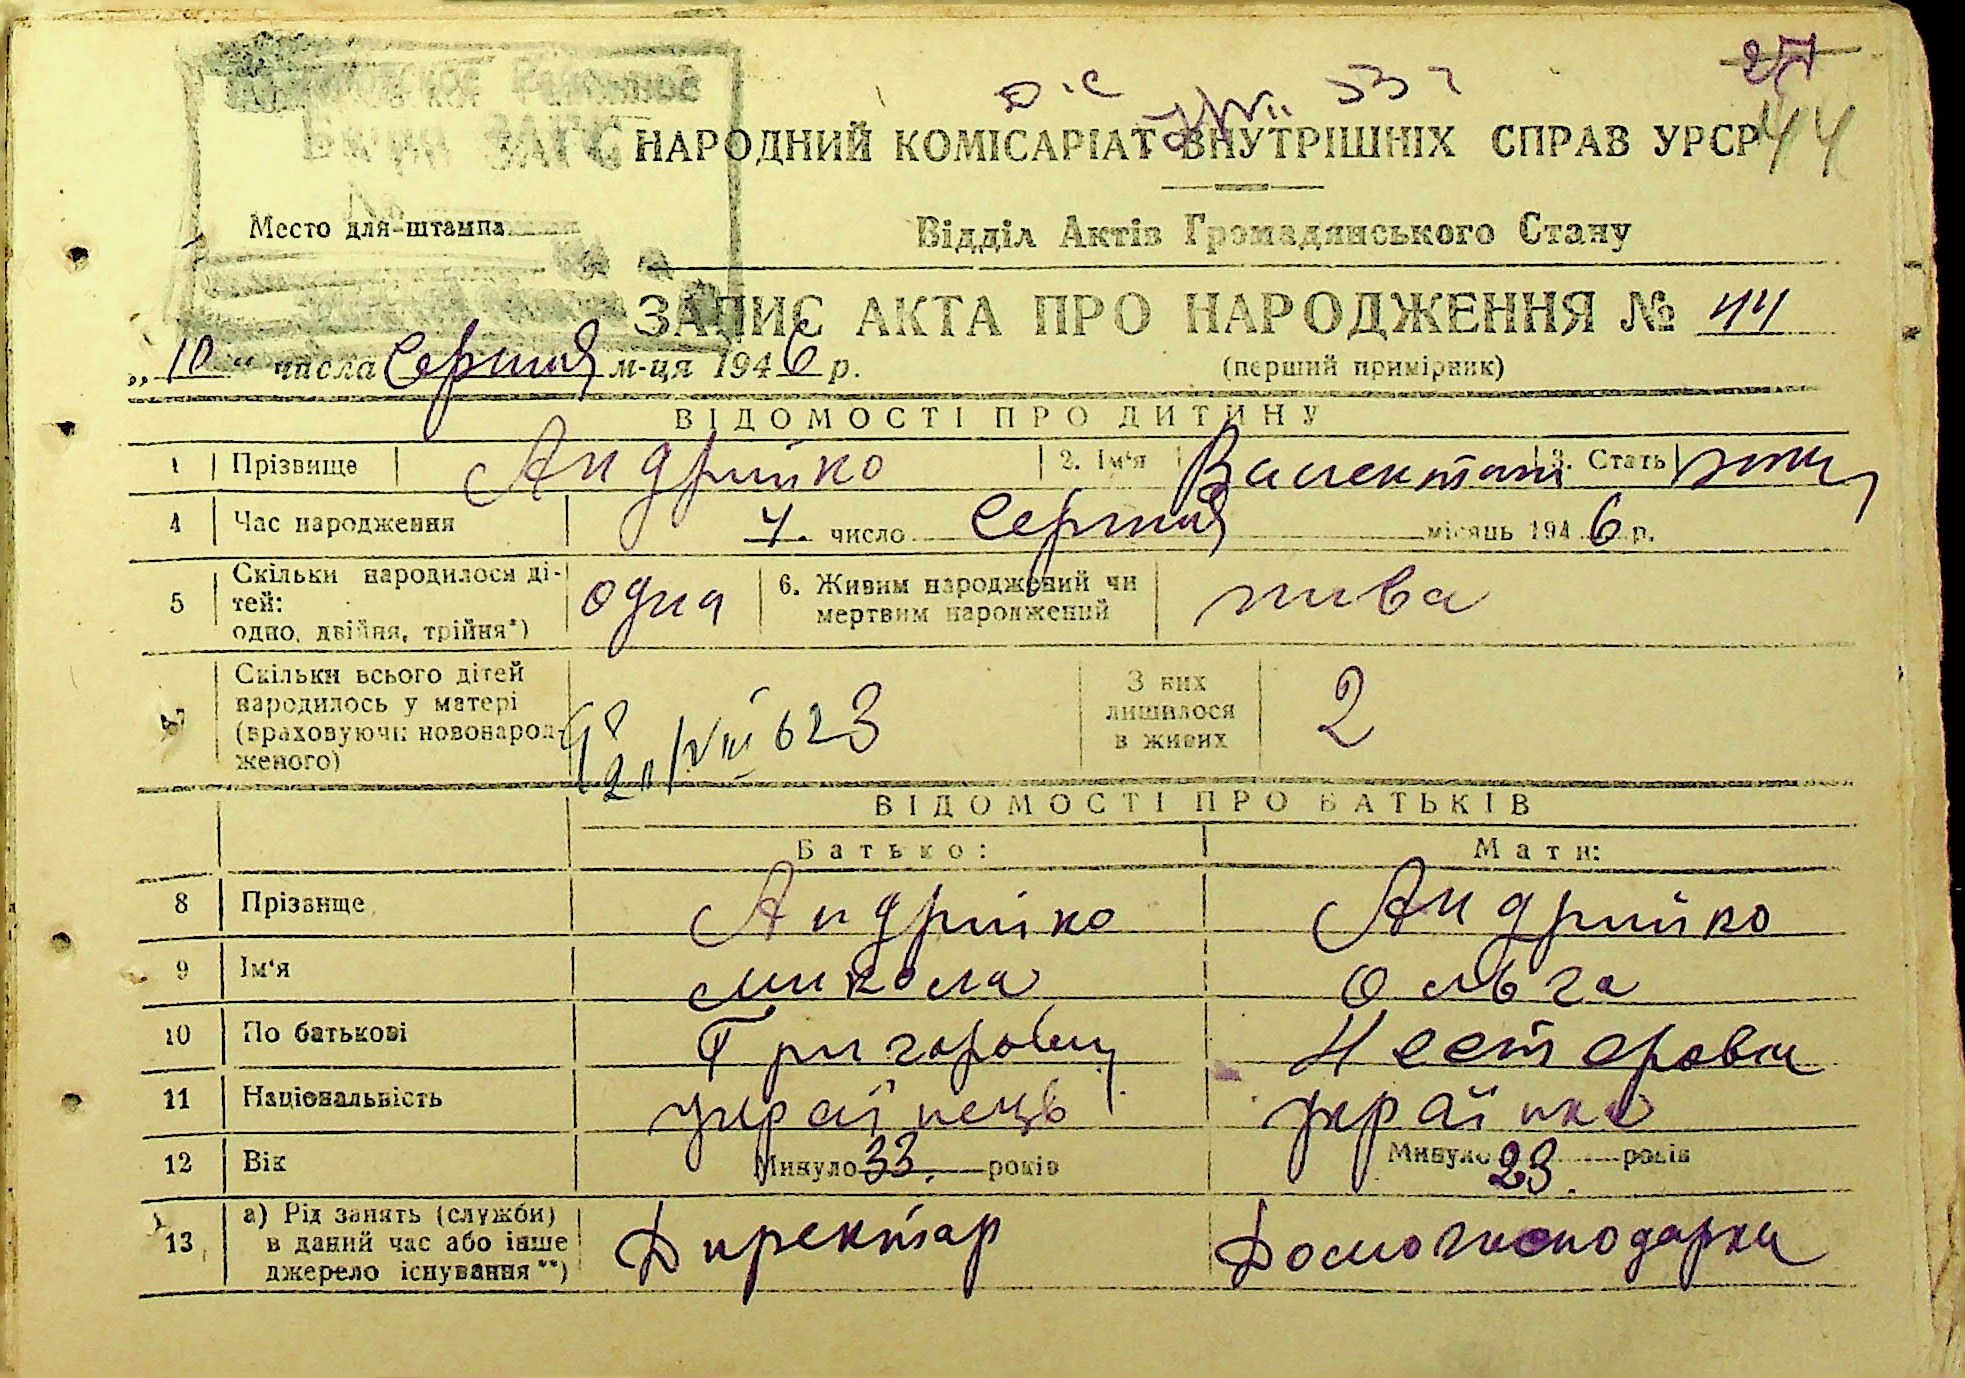 27
44
НАРОДНИЙ КОМІСАРІАТ ВНУТРІШНІХ СПРАВ УРСР
Бюро ЗАГС
Место для штампа
Відділ Актів Громадянського Стану
ЗАПИС АКТА ПРО НАРОДЖЕННЯ № 44
„10“ числа Серпня м-ця 1946 р.
(перший примірник)
ВІДОМОСТІ ПРО ДИТИНУ
1 Прізвище Андрийко 2. Ім‘я Валентина 3. Стать жін
4 Час народження 7. число Серпня місяць 1946 р.
5 Скільки народилося ді-
тей:
одно, двійня, трійня*) одна
6. Живим народжений чи
мертвим народжений жива
7 Скільки всього дітей
народилось у матері
(враховуючи новонарод-
женого) 3
З них
лишилося
в живих 2
ВІДОМОСТІ ПРО БАТЬКІВ
Батько: Мати:
8 Прізвище Андрийко Андрийко
9 Ім‘я Микола Ольга
10 По батькові Григорович Нестеровн
11 Національність українець українка
12 Вік Минуло 33. років Минуло 23. років
13 а) Рід занять (служби)
в даний час або інше
джерело існування**) Директор Домогосподарка